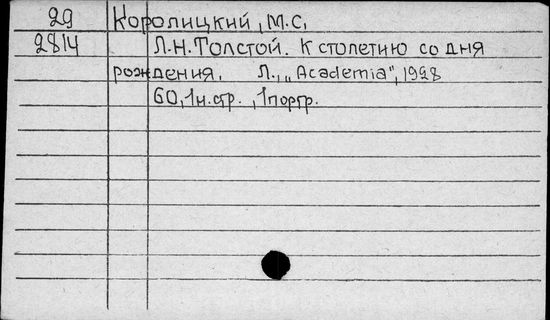 29 Королицкий, М.С,
2814 Л.Н.Толстой. К столетию со дня
рождения. Л., „Academia", 1928
60, 1н.стр., 1портр.